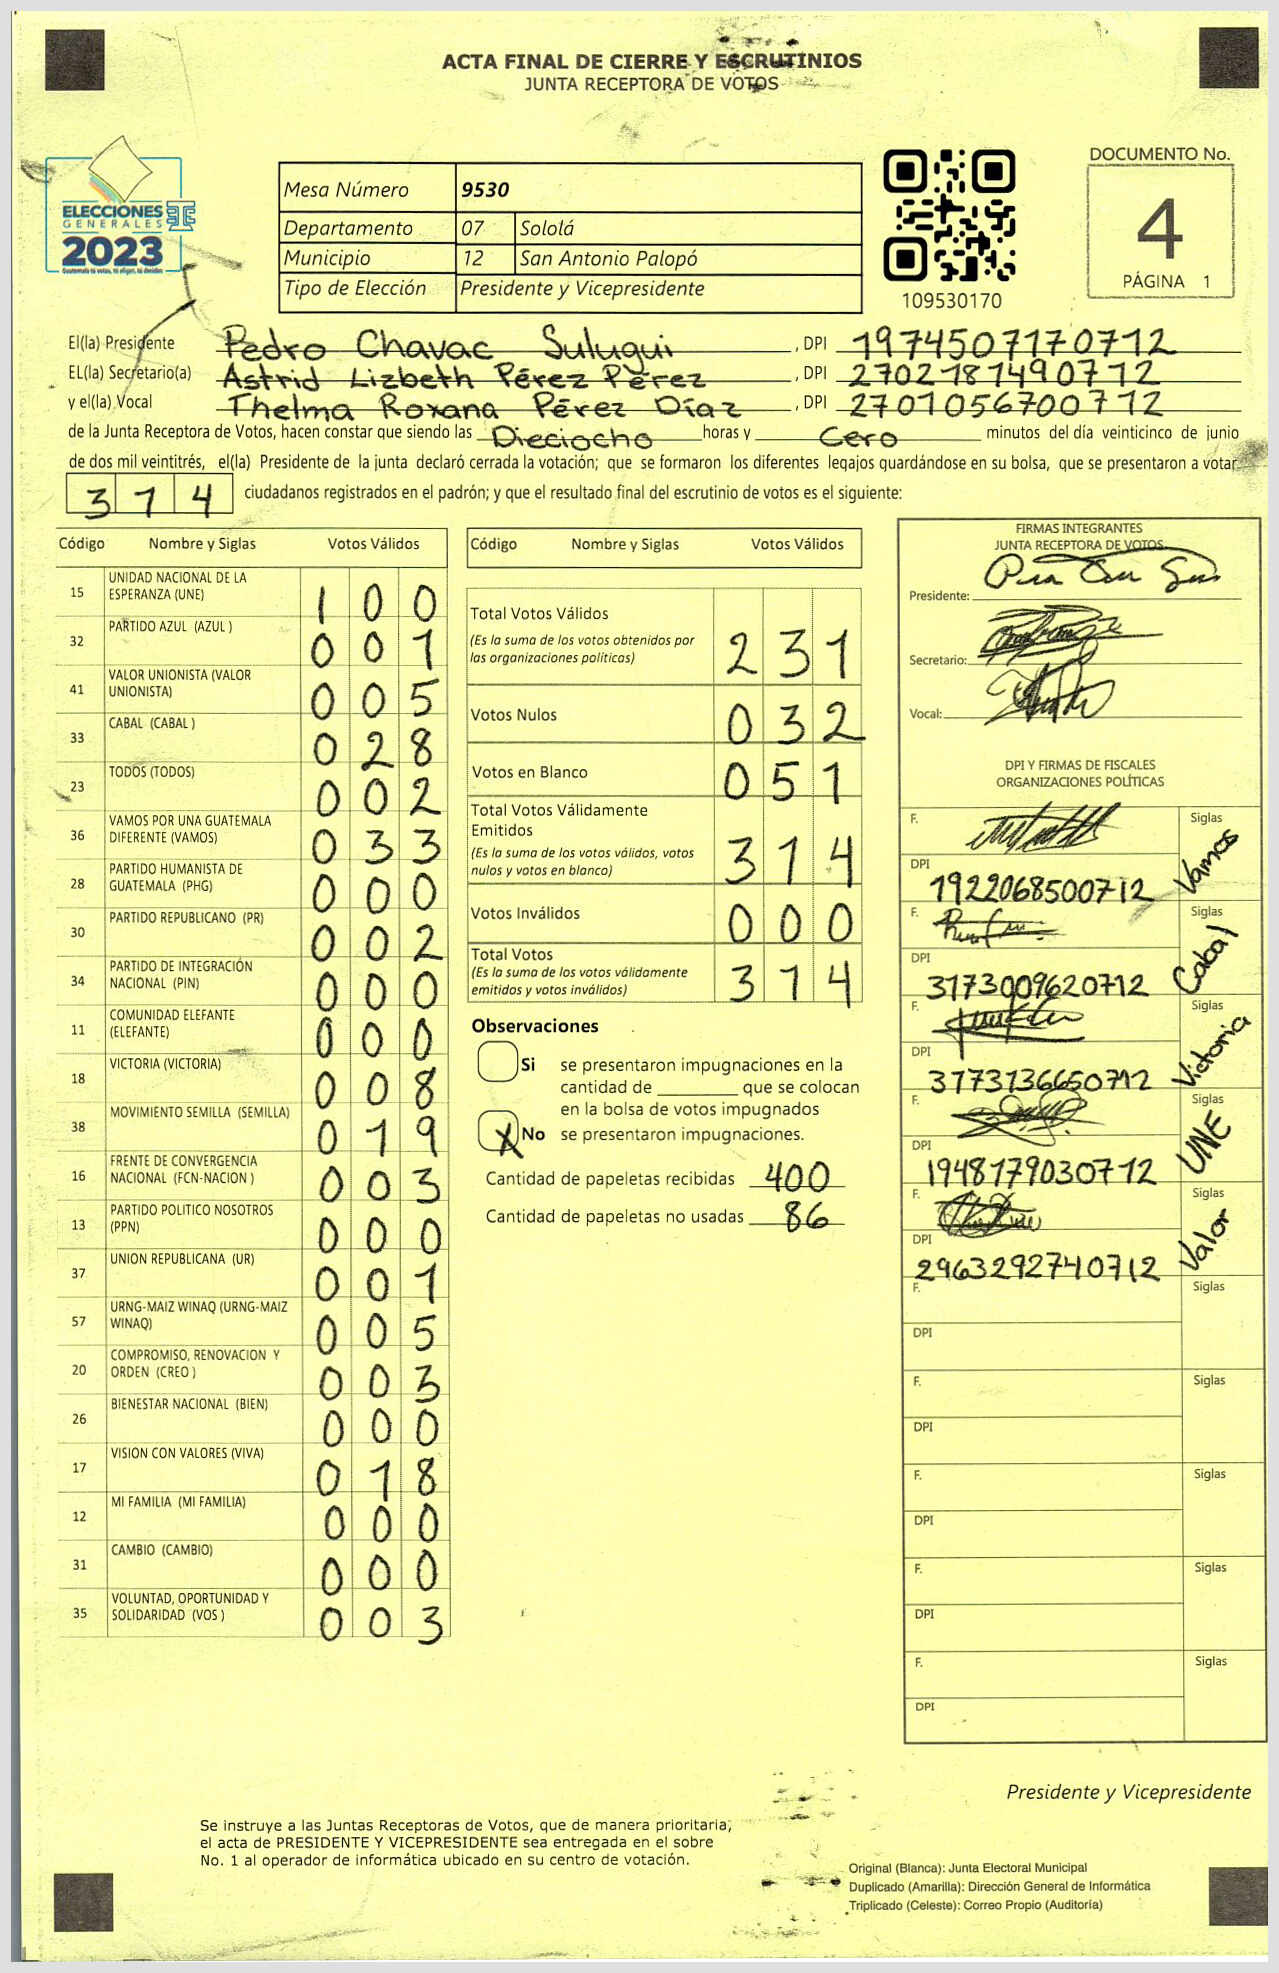 ACTA FINAL DE CIERRE Y ESCRUTINIOS
JUNTA RECEPTORA DE VOTOS
ELECCIONES
GENERALES
2023
Guatemala tú votas, tú eliges, tú decides
Mesa Número 9530
Departamento 07 Sololá
Municipio 12 San Antonio Palopó
Tipo de Elección Presidente y Vicepresidente
109530170
DOCUMENTO No.
4
PÁGINA 1
El(la) Presidente Pedro Chavac Sulugui, DPI 1974507170712
EL(la) Secretario(a) Astrid Lizbeth Pérez Pérez, DPI 2702181490712
y el(la) Vocal Thelma Roxana Pérez Díaz, DPI 2701056700712
de la Junta Receptora de Votos, hacen constar que siendo las Dieciocho horas y Cero minutos del día veinticinco de junio
de dos mil veintitrés, el(la) Presidente de la junta declaró cerrada la votación; que se formaron los diferentes legajos guardándose en su bolsa, que se presentaron a votar
314 ciudadanos registrados en el padrón; y que el resultado final del escrutinio de votos es el siguiente:
Código Nombre y Siglas Votos Válidos
15 UNIDAD NACIONAL DE LA ESPERANZA (UNE) 1 0 0
32 PARTIDO AZUL (AZUL ) 0 0 1
41 VALOR UNIONISTA (VALOR UNIONISTA) 0 0 5
33 CABAL (CABAL ) 0 2 8
23 TODOS (TODOS) 0 0 2
36 VAMOS POR UNA GUATEMALA DIFERENTE (VAMOS) 0 3 3
28 PARTIDO HUMANISTA DE GUATEMALA (PHG) 0 0 0
30 PARTIDO REPUBLICANO (PR) 0 0 2
34 PARTIDO DE INTEGRACIÓN NACIONAL (PIN) 0 0 0
11 COMUNIDAD ELEFANTE (ELEFANTE) 0 0 0
18 VICTORIA (VICTORIA) 0 0 8
38 MOVIMIENTO SEMILLA (SEMILLA) 0 1 9
16 FRENTE DE CONVERGENCIA NACIONAL (FCN-NACION ) 0 0 3
13 PARTIDO POLITICO NOSOTROS (PPN) 0 0 0
37 UNION REPUBLICANA (UR) 0 0 1
57 URNG-MAIZ WINAQ (URNG-MAIZ WINAQ) 0 0 5
20 COMPROMISO, RENOVACION Y ORDEN (CREO ) 0 0 3
26 BIENESTAR NACIONAL (BIEN) 0 0 0
17 VISION CON VALORES (VIVA) 0 1 8
12 MI FAMILIA (MI FAMILIA) 0 0 0
31 CAMBIO (CAMBIO) 0 0 0
35 VOLUNTAD, OPORTUNIDAD Y SOLIDARIDAD (VOS ) 0 0 3
Código Nombre y Siglas Votos Válidos
Total Votos Válidos
(Es la suma de los votos obtenidos por
las organizaciones políticas) 2 3 1
Votos Nulos 0 3 2
Votos en Blanco 0 5 1
Total Votos Válidamente
Emitidos
(Es la suma de los votos válidos, votos
nulos y votos en blanco) 3 1 4
Votos Inválidos 0 0 0
Total Votos
(Es la suma de los votos válidamente
emitidos y votos inválidos) 3 1 4
Observaciones
Si se presentaron impugnaciones en la
cantidad de ________ que se colocan
en la bolsa de votos impugnados
X No se presentaron impugnaciones.
Cantidad de papeletas recibidas 400
Cantidad de papeletas no usadas 86
FIRMAS INTEGRANTES
JUNTA RECEPTORA DE VOTOS
Presidente:
Secretario:
Vocal:
DPI Y FIRMAS DE FISCALES
ORGANIZACIONES POLÍTICAS
F. Siglas Vamos
DPI 1922068500712
F. Siglas Cabal
DPI 3173009620712
F. Siglas Victoria
DPI 3173136650712
F. Siglas UNE
DPI 1948179030712
F. Siglas Valor
DPI 2963292740712
F. Siglas
DPI
F. Siglas
DPI
F. Siglas
DPI
F. Siglas
DPI
F. Siglas
DPI
Presidente y Vicepresidente
Se instruye a las Juntas Receptoras de Votos, que de manera prioritaria,
el acta de PRESIDENTE Y VICEPRESIDENTE sea entregada en el sobre
No. 1 al operador de informática ubicado en su centro de votación.
Original (Blanca): Junta Electoral Municipal
Duplicado (Amarilla): Dirección General de Informática
Triplicado (Celeste): Correo Propio (Auditoría)